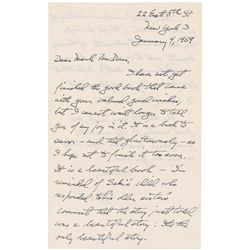 22 East 8th St
New York 3
January 4, 1959
Dear Mark Van Doren,
I have not yet
finished the good book that came
with your valued good wishes,
but I cannot wait longer to tell
you of my joy in it. It is a book to
savor - and that gluttonously - so
I hope not to finish it too soon.
It is a beautiful book - I'm
reminded of Saki's child who
responded to his older sister's
comment that the story just told
was a beautiful story: "It's the
only beautiful story.